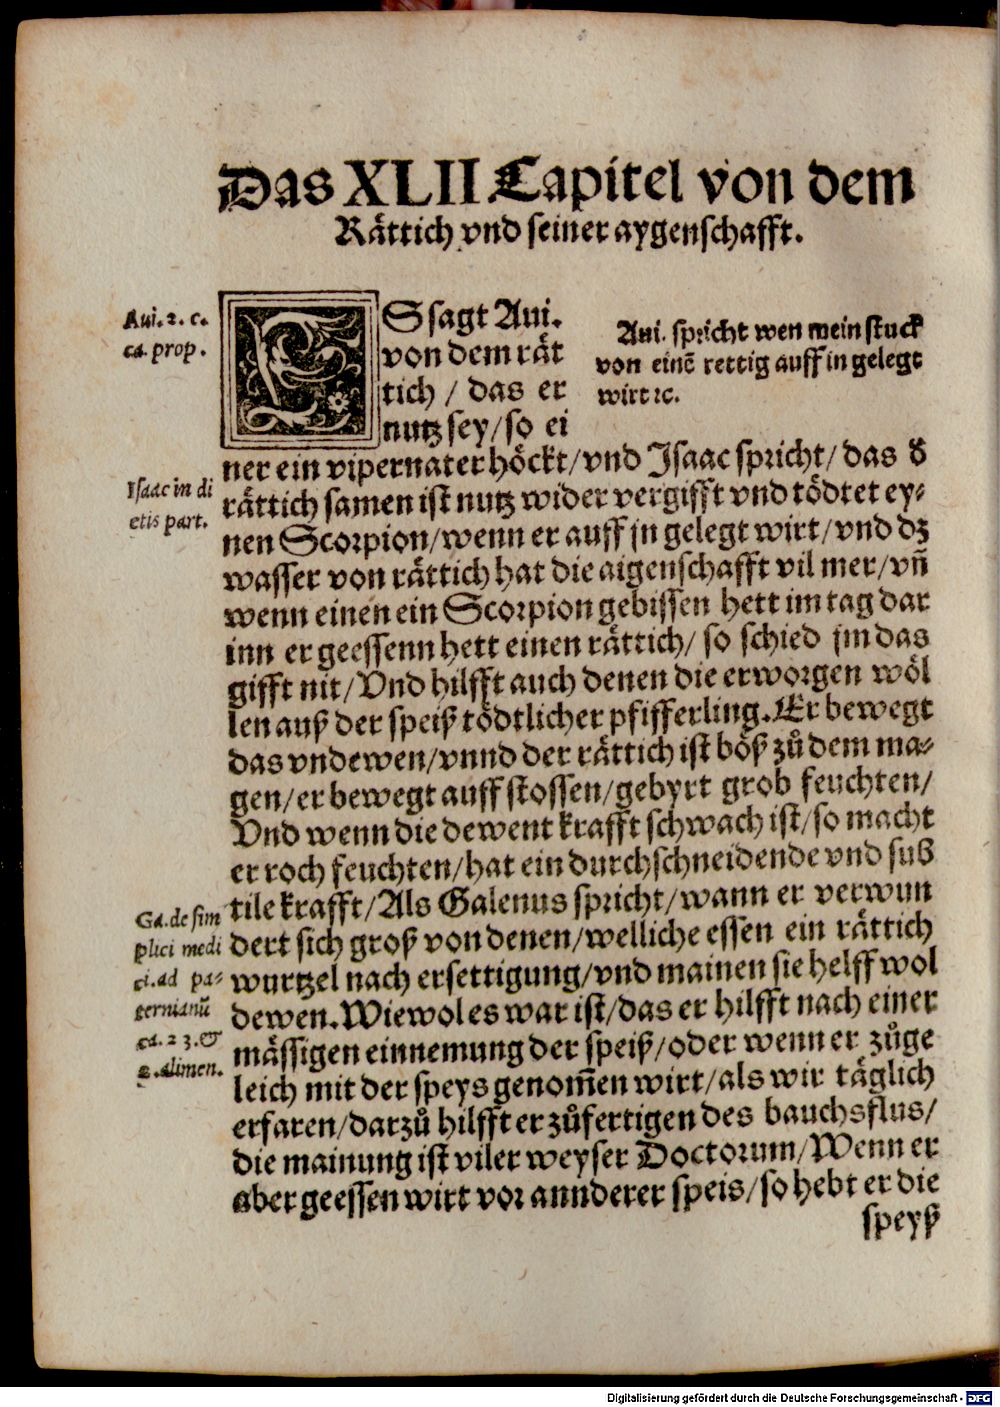 Das XLII Capitel von dem
Rättich vnd seiner aygenschafft.
Aui. 2. c.
ca. prop.
ES sagt Aui.
von dem rät
tich / das er
nutz sey/so ei
Aui. spricht wen mein stuck
von einē rettig auff in gelegt
wirt ꝛc.
ner ein vipernater höckt/vnd Isaac spricht/das d̕
Isaac in di
etis part.
rättich samen ist nutz wider vergifft vnd tödtet ey-
nen Scorpion/wenn er auff jn gelegt wirt/vnd dz
wasser von rättich hat die aigenschafft vil mer/vn̄
wenn einen ein Scorpion gebissen hett im tag dar
inn er geessenn hett einen rättich/ so schied jm das
gifft nit/Vnd hilfft auch denen die erworgen wöl
len auß der speiß tödtlicher pfifferling.Er bewegt
das vndewen/vnnd der rättich ist böß zů dem ma-
gen/er bewegt auff stossen/gebyrt grob feuchten/
Vnd wenn die dewent krafft schwach ist/so macht
er roch feuchten/hat ein durchschneidende vnd sub
Ga. de sim
plici medi
ci. ad pa-
ternianū
ca. 23. &
2. alimen.
tile krafft/Als Galenus spricht/wann er verwun
dert sich groß von denen/welliche essen ein rättich
wurtzel nach ersettigung/vnd mainen sie helff wol
dewen.Wiewol es war ist/das er hilfft nach einer
mässigen einnemung der speiß/oder wenn er zůge
leich mit der speys genom̄en wirt/als wir täglich
erfaren/darzů hilfft er zůfertigen des bauchsflus/
die mainung ist viler weyser Doctorum/Wenn er
aber geessen wirt vor annderer speis/so hebt er die
speyß
Digitalisierung gefördert durch die Deutsche Forschungsgemeinschaft - DFG